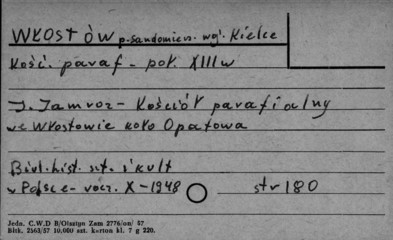 WŁOSTÓW p-Sandomiers. wój. Kielce
Kość. paraf - poł. XIII w
J. Jamroz - Kościół parafialny
we Włostowie koło Opatowa
Biul. hist. szt. i kult
w Polsce - rocz. X - 1948 str 180
Jedn. C.W.D B/Olsztyn Zam 2776/an/ 57
Błtk. 2563/57 10.000 szt. karton kl. 7 g 220.